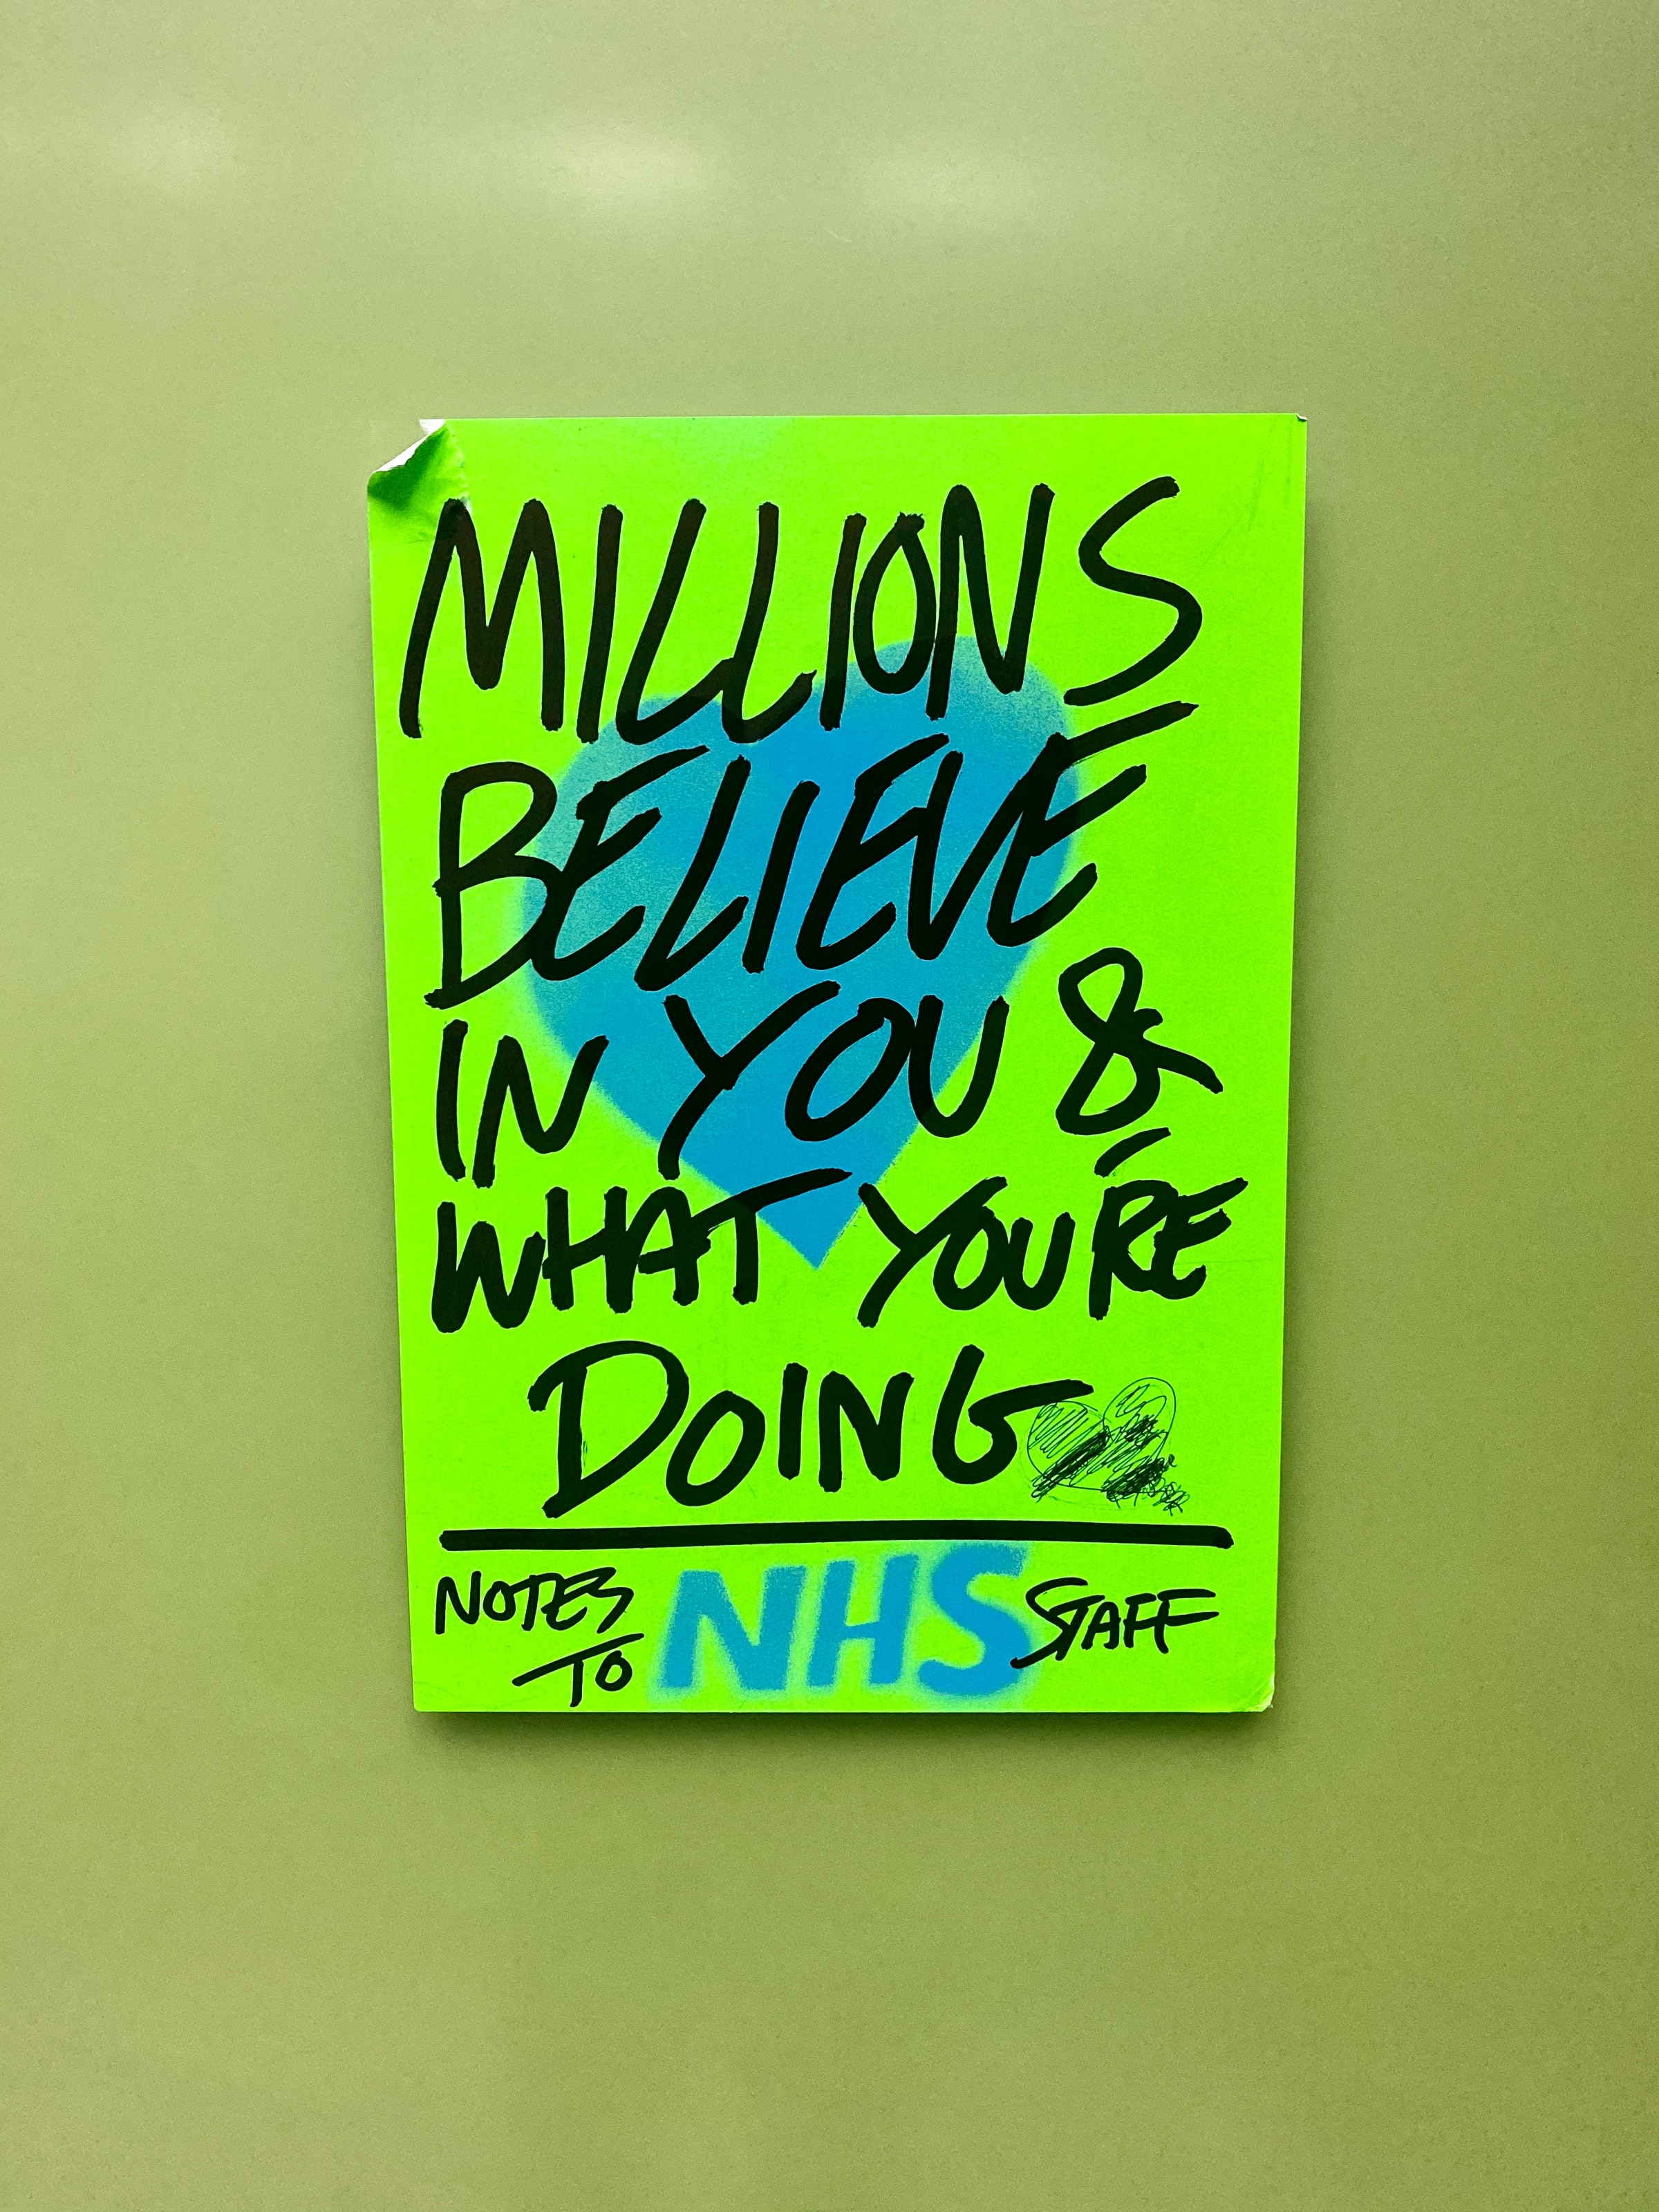 MILLIONS
BELIEVE
IN YOU &
WHAT YOU'RE
DOING
NOTES TO NHS STAFF